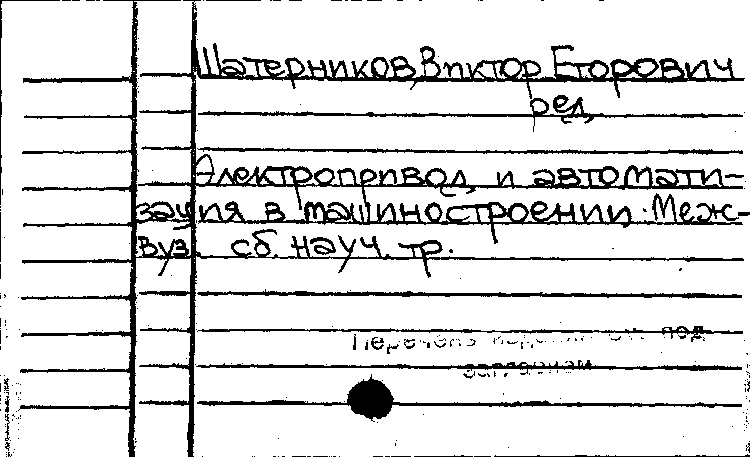 Шатерников, Виктор Егорович
ред.
Электропривод и автомати-
зация в машиностроении: Меж-
вуз. сб. науч. тр.
Перечень изданий см. под
заглавием